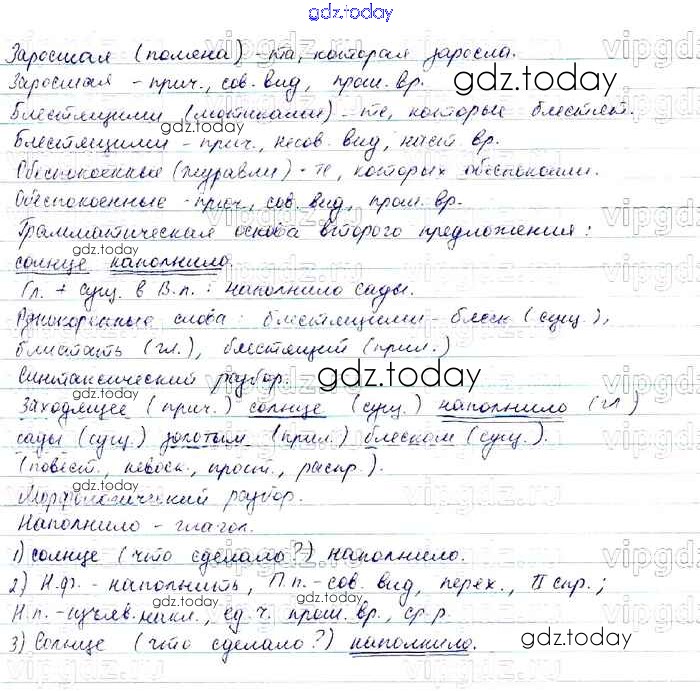 gdz.today
Заросшая (поляна) - та, которая заросла.
Заросшая - прич., сов. вид, прош. вр.
Блестящими (мотиками) - те, которые блестят.
Блестящими - прич., несов. вид, наст. вр.
Обеспокоенные (журавли) - те, которых обеспокоили.
Обеспокоенные - прич., сов. вид, прош. вр.
Грамматическая основа второго предложения:
солнце наполнило.
Гл. + сущ. в В.п.: наполнило сады.
Однокоренные слова: блестящими - блеск (сущ.),
блистать (гл.), блестящий (прил.)
Синтаксический разбор.
Заходящее (прич.) солнце (сущ.) наполнило (гл.)
сады (сущ.) золотым (прил.) блеском (сущ.).
(повест., невоск., прост., распр.).
Морфологический разбор.
Наполнило - глагол.
1) солнце (что сделало?) наполнило.
2) Н.ф. - наполнить, П.п. - сов. вид, перех., II спр.;
Н.п. - изъяв. накл., ед. ч. прош. вр., ср.р.
3) Солнце (что сделало?) наполнило.